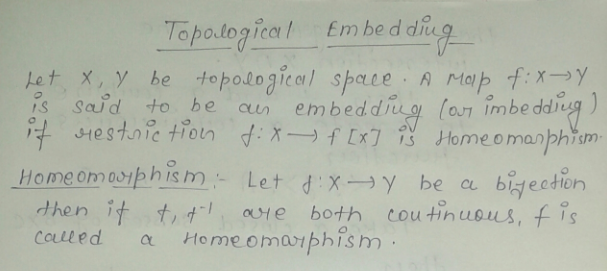 Topological Embedding
Let X, Y be topological space. A Map f: X → Y
is said to be an embedding (or imbedding)
if restriction f: X → f[x] is Homeomorphism.
Homeomorphism:- Let f: X → Y be a bijection
then if f, f⁻¹ are both continuous, f is
called a Homeomorphism.